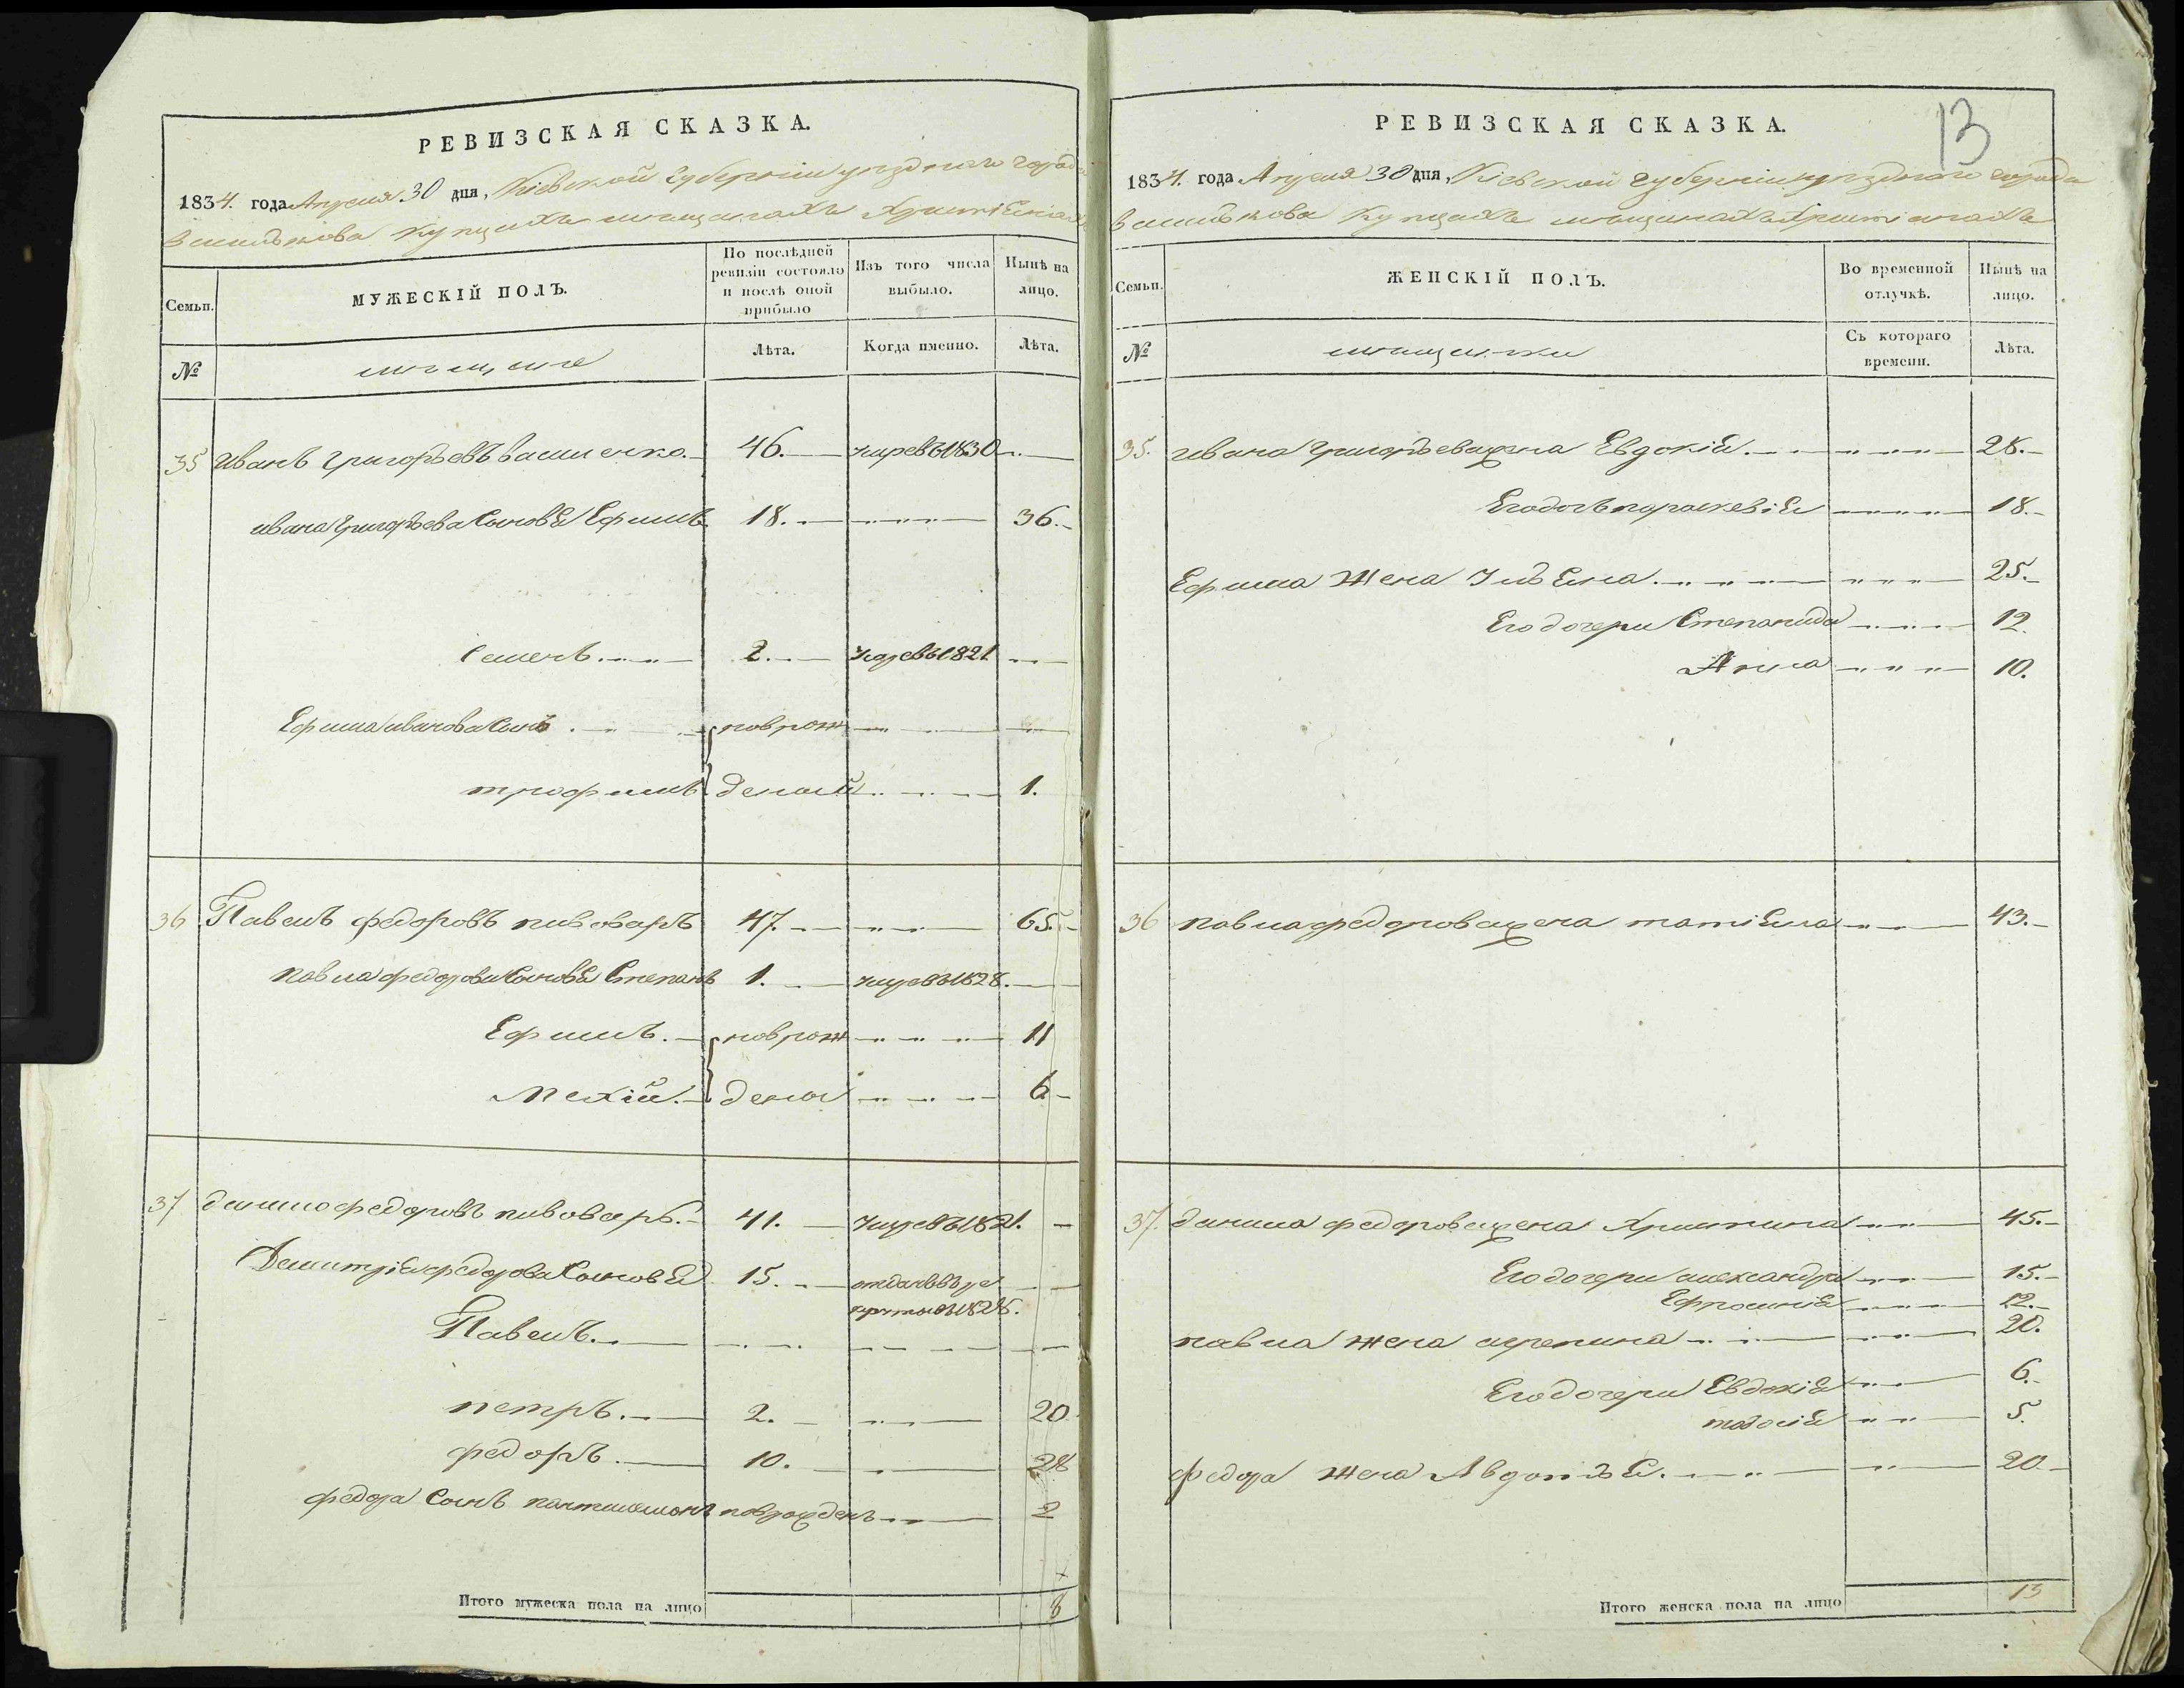 РЕВИЗСКАЯ СКАЗКА.
1834. года Апреля 30 дня, Кіевской губерніи уезднаго города
Василькова купцахъ мещанахъ христіянахъ
Семьи.
МУЖЕСКІЙ ПОЛЪ.
По послѣдней ревизіи состояло и послѣ оной прибыло
Изъ того числа выбыло.
Нынѣ на лицо.
№
мещане
Лѣта.
Когда именно.
Лѣта.
35 Иванъ Григорьевъ Василенко. 46. умревъ 1830
Ивана Григорьева сыновья Ефимъ 18. 36.
Семенъ. 2. умревъ 1821
Ефима Иванова сынъ новрож
трофимъ. деный 1.
36 Павелъ федоровъ пивоваръ 47. 65.
павла федорова сыновья Степанъ 1. умревъ 1828.
Ефимъ. новрож 11
Мехій. дены 6
37 данило федоровъ пивоваръ. 41. умревъ 1821.
Демитрія федорова сыновья 15. отданъ въ ре
круты въ 1828.
Павелъ.
петръ. 2. 20
федоръ. 10. 28
федора сынъ пантилимонъ новрожденъ 2
Итого мужеска пола на лицо 8
13
РЕВИЗСКАЯ СКАЗКА.
1834. года Апреля 30 дня, Кіевской губерніи уезднаго города
Василькова купцахъ мещанахъ христіянахъ
Семьи.
ЖЕНСКІЙ ПОЛЪ.
Во временной отлучкѣ.
Нынѣ на лицо.
№
мещанки
Съ котораго времени.
Лѣта.
35. ивана Григорьева жена Евдокія. 28.
Его дочь параскевія 18.
Ефима жена Ульяна. 25.
Его дочери Степанида 12.
Анна 10.
36 павла федорова жена татіяна 43.
37. данила федорова жена Христина 45.
Его дочери александра 15.
Ефросинія 12.
павла жена агрепина 20.
Его дочери Евдокія 6.
5.
федора жена Авдотья. 20
Итого женска пола на лицо 13